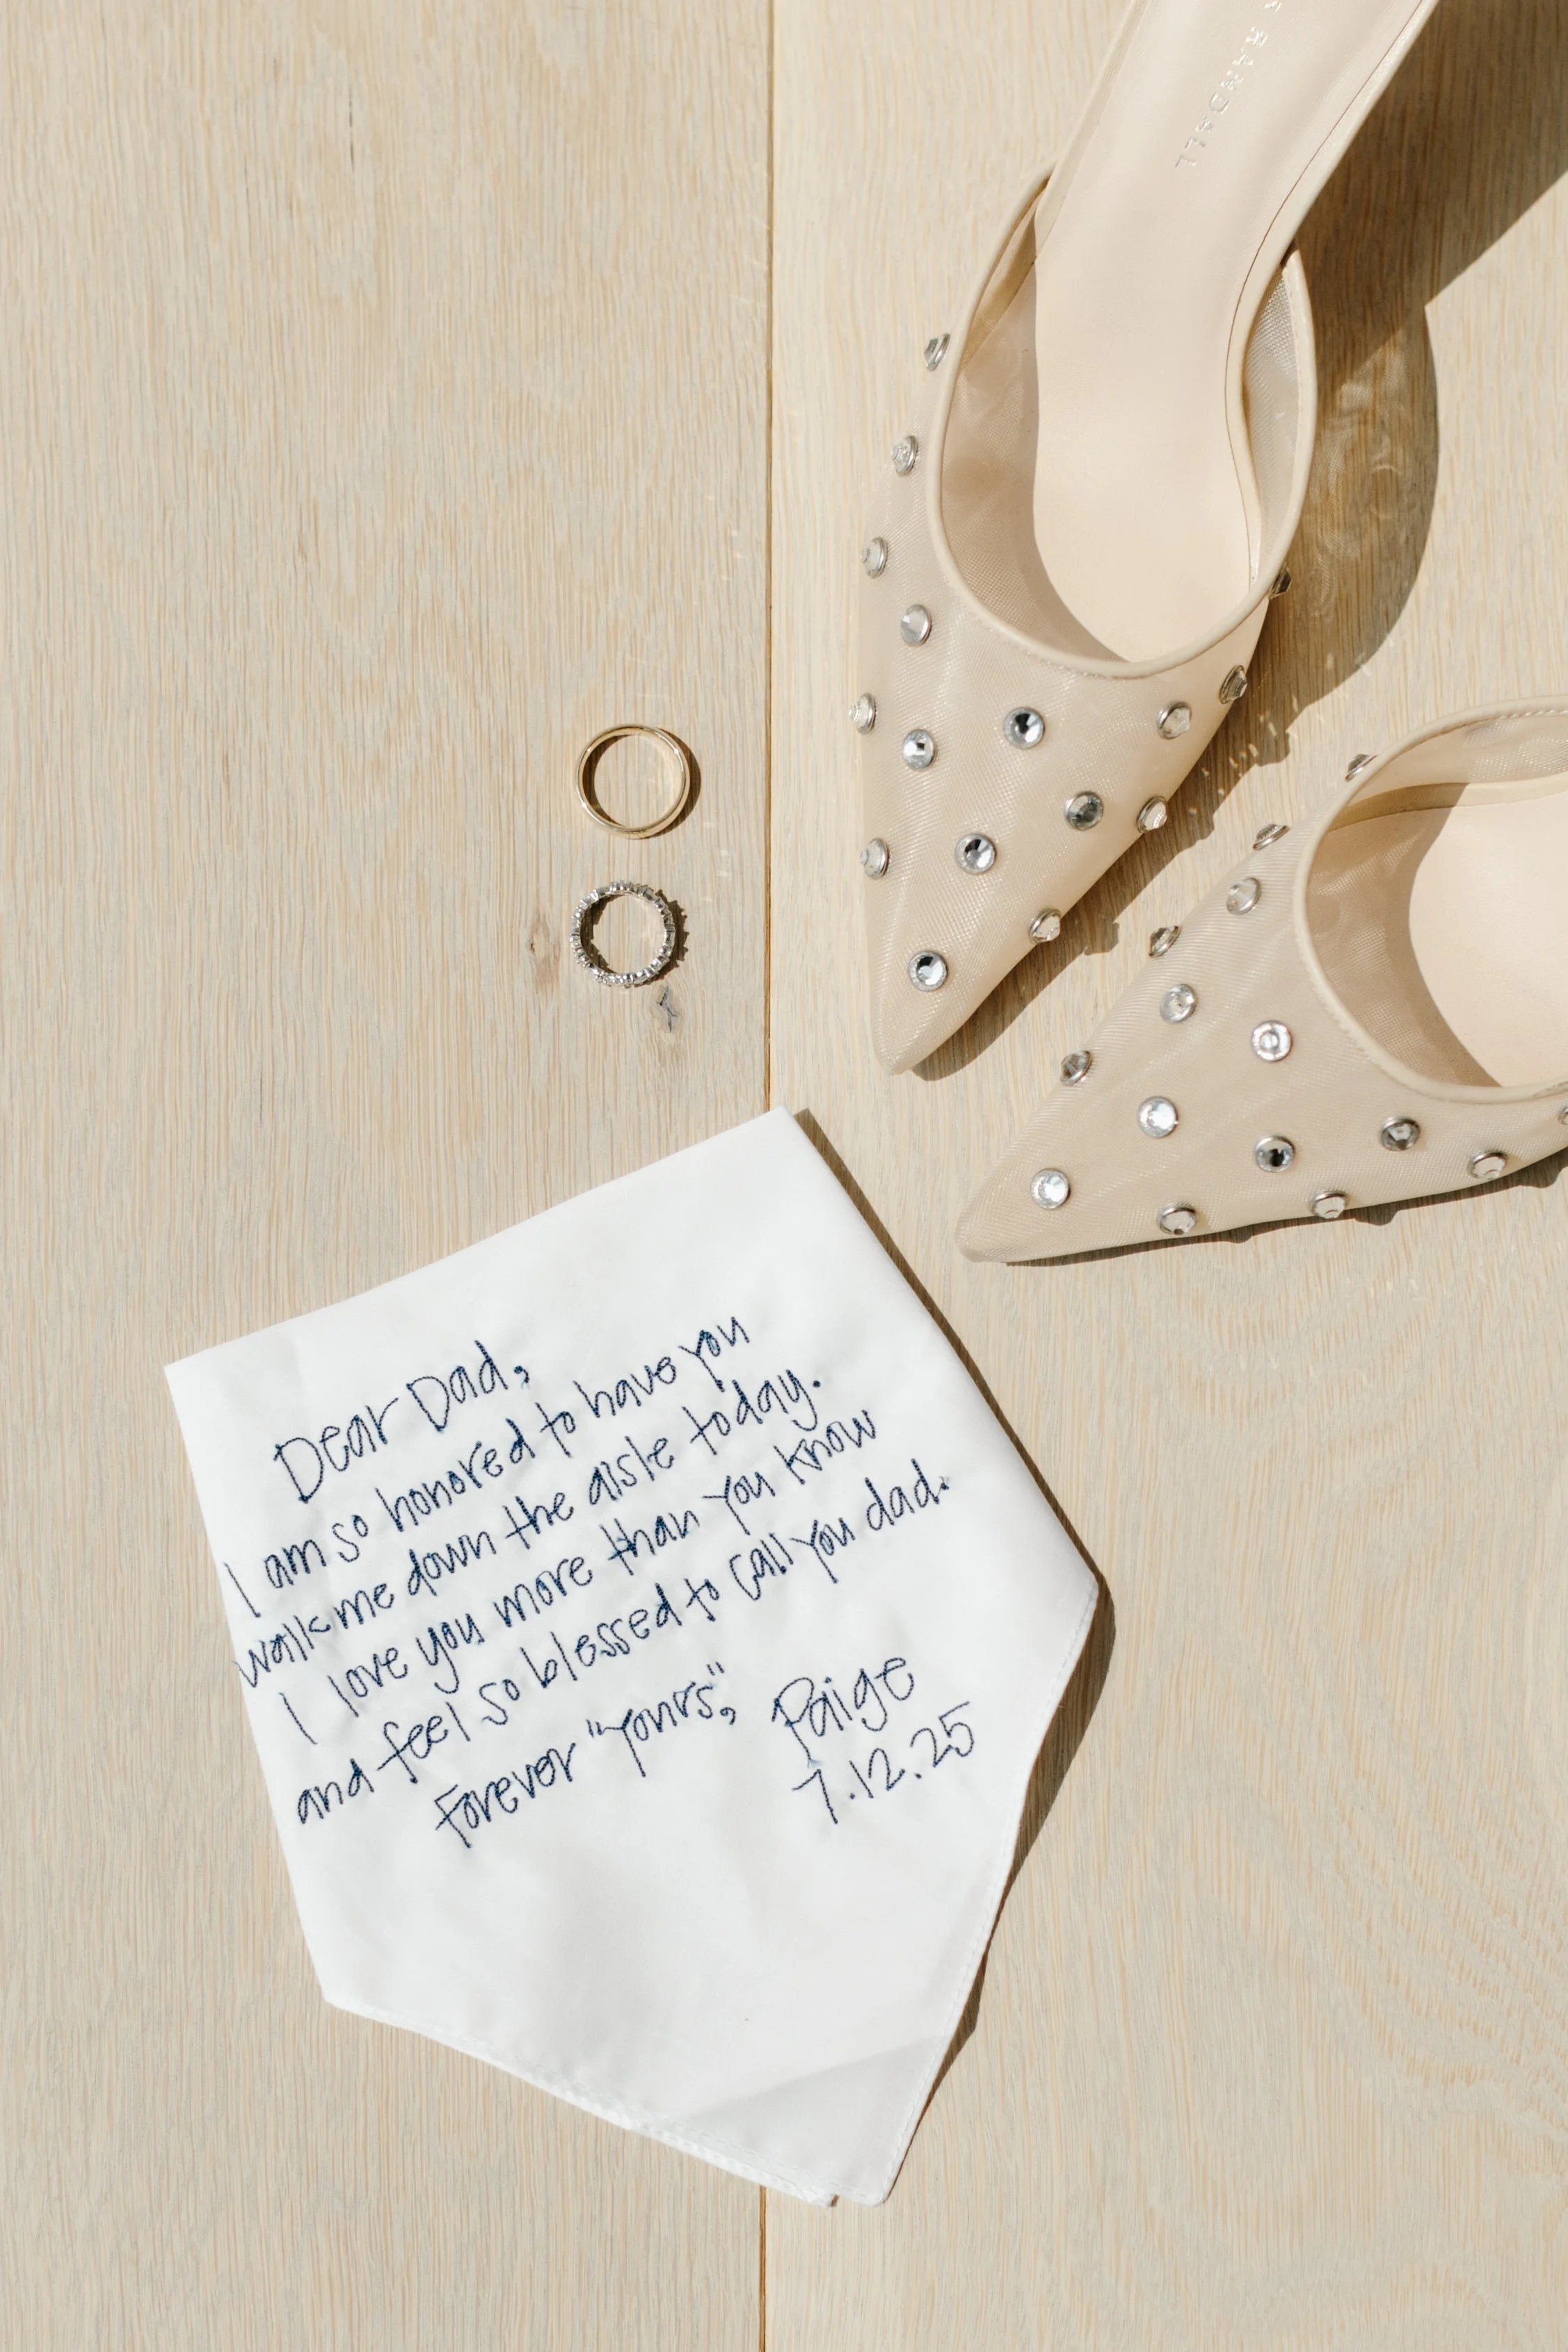 RANDALL
Dear Dad,
I am so honored to have you
walk me down the aisle today.
I love you more than you know
and feel so blessed to call you dad.
Forever "yours",
Paige
7.12.25